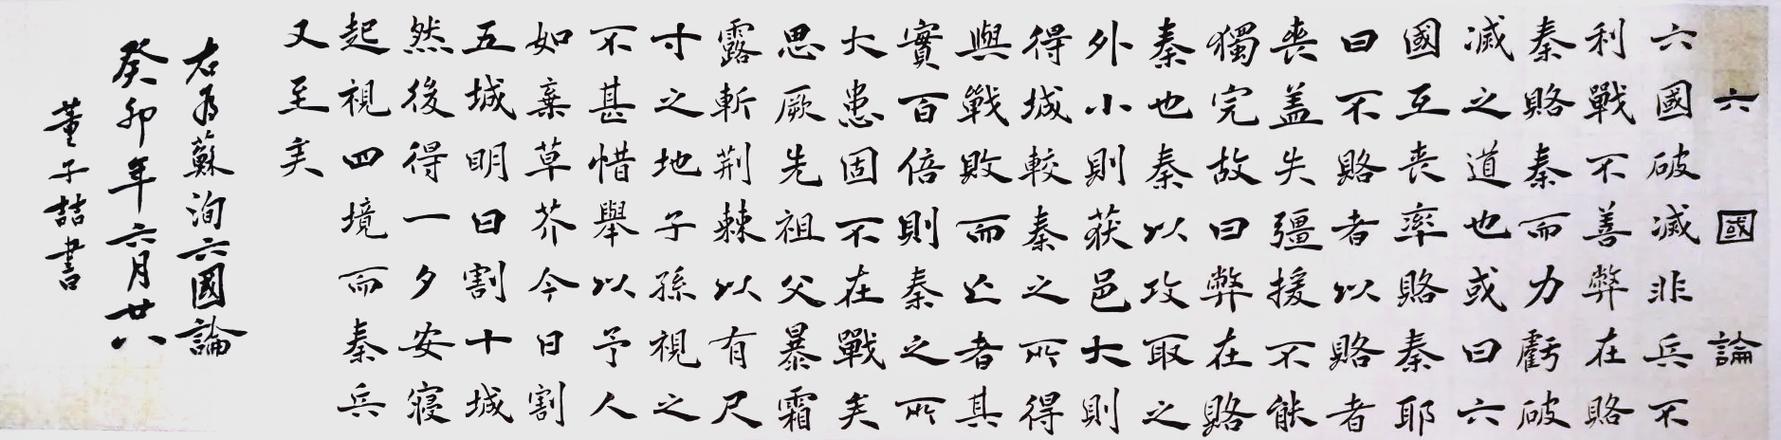 六國論
六國破滅非兵不
利戰不善弊在賂
秦賂秦而力虧破
滅之道也或曰六
國互喪率賂秦耶
曰不賂者以賂者
喪盖失彊援不能
獨完故曰弊在賂
秦也秦以攻取之
外小則获邑大則
得城較秦之所得
與戰敗而亡者其
實百倍則秦之所
大患固不在戰矣
思厥先祖父暴霜
露斬荆棘以有尺
寸之地子孫視之
不甚惜舉以予人
如棄草芥今日割
五城明日割十城
然後得一夕安寢
起視四境而秦兵
又至矣
右為蘇洵六國論
癸卯年六月廿八
董子喆書